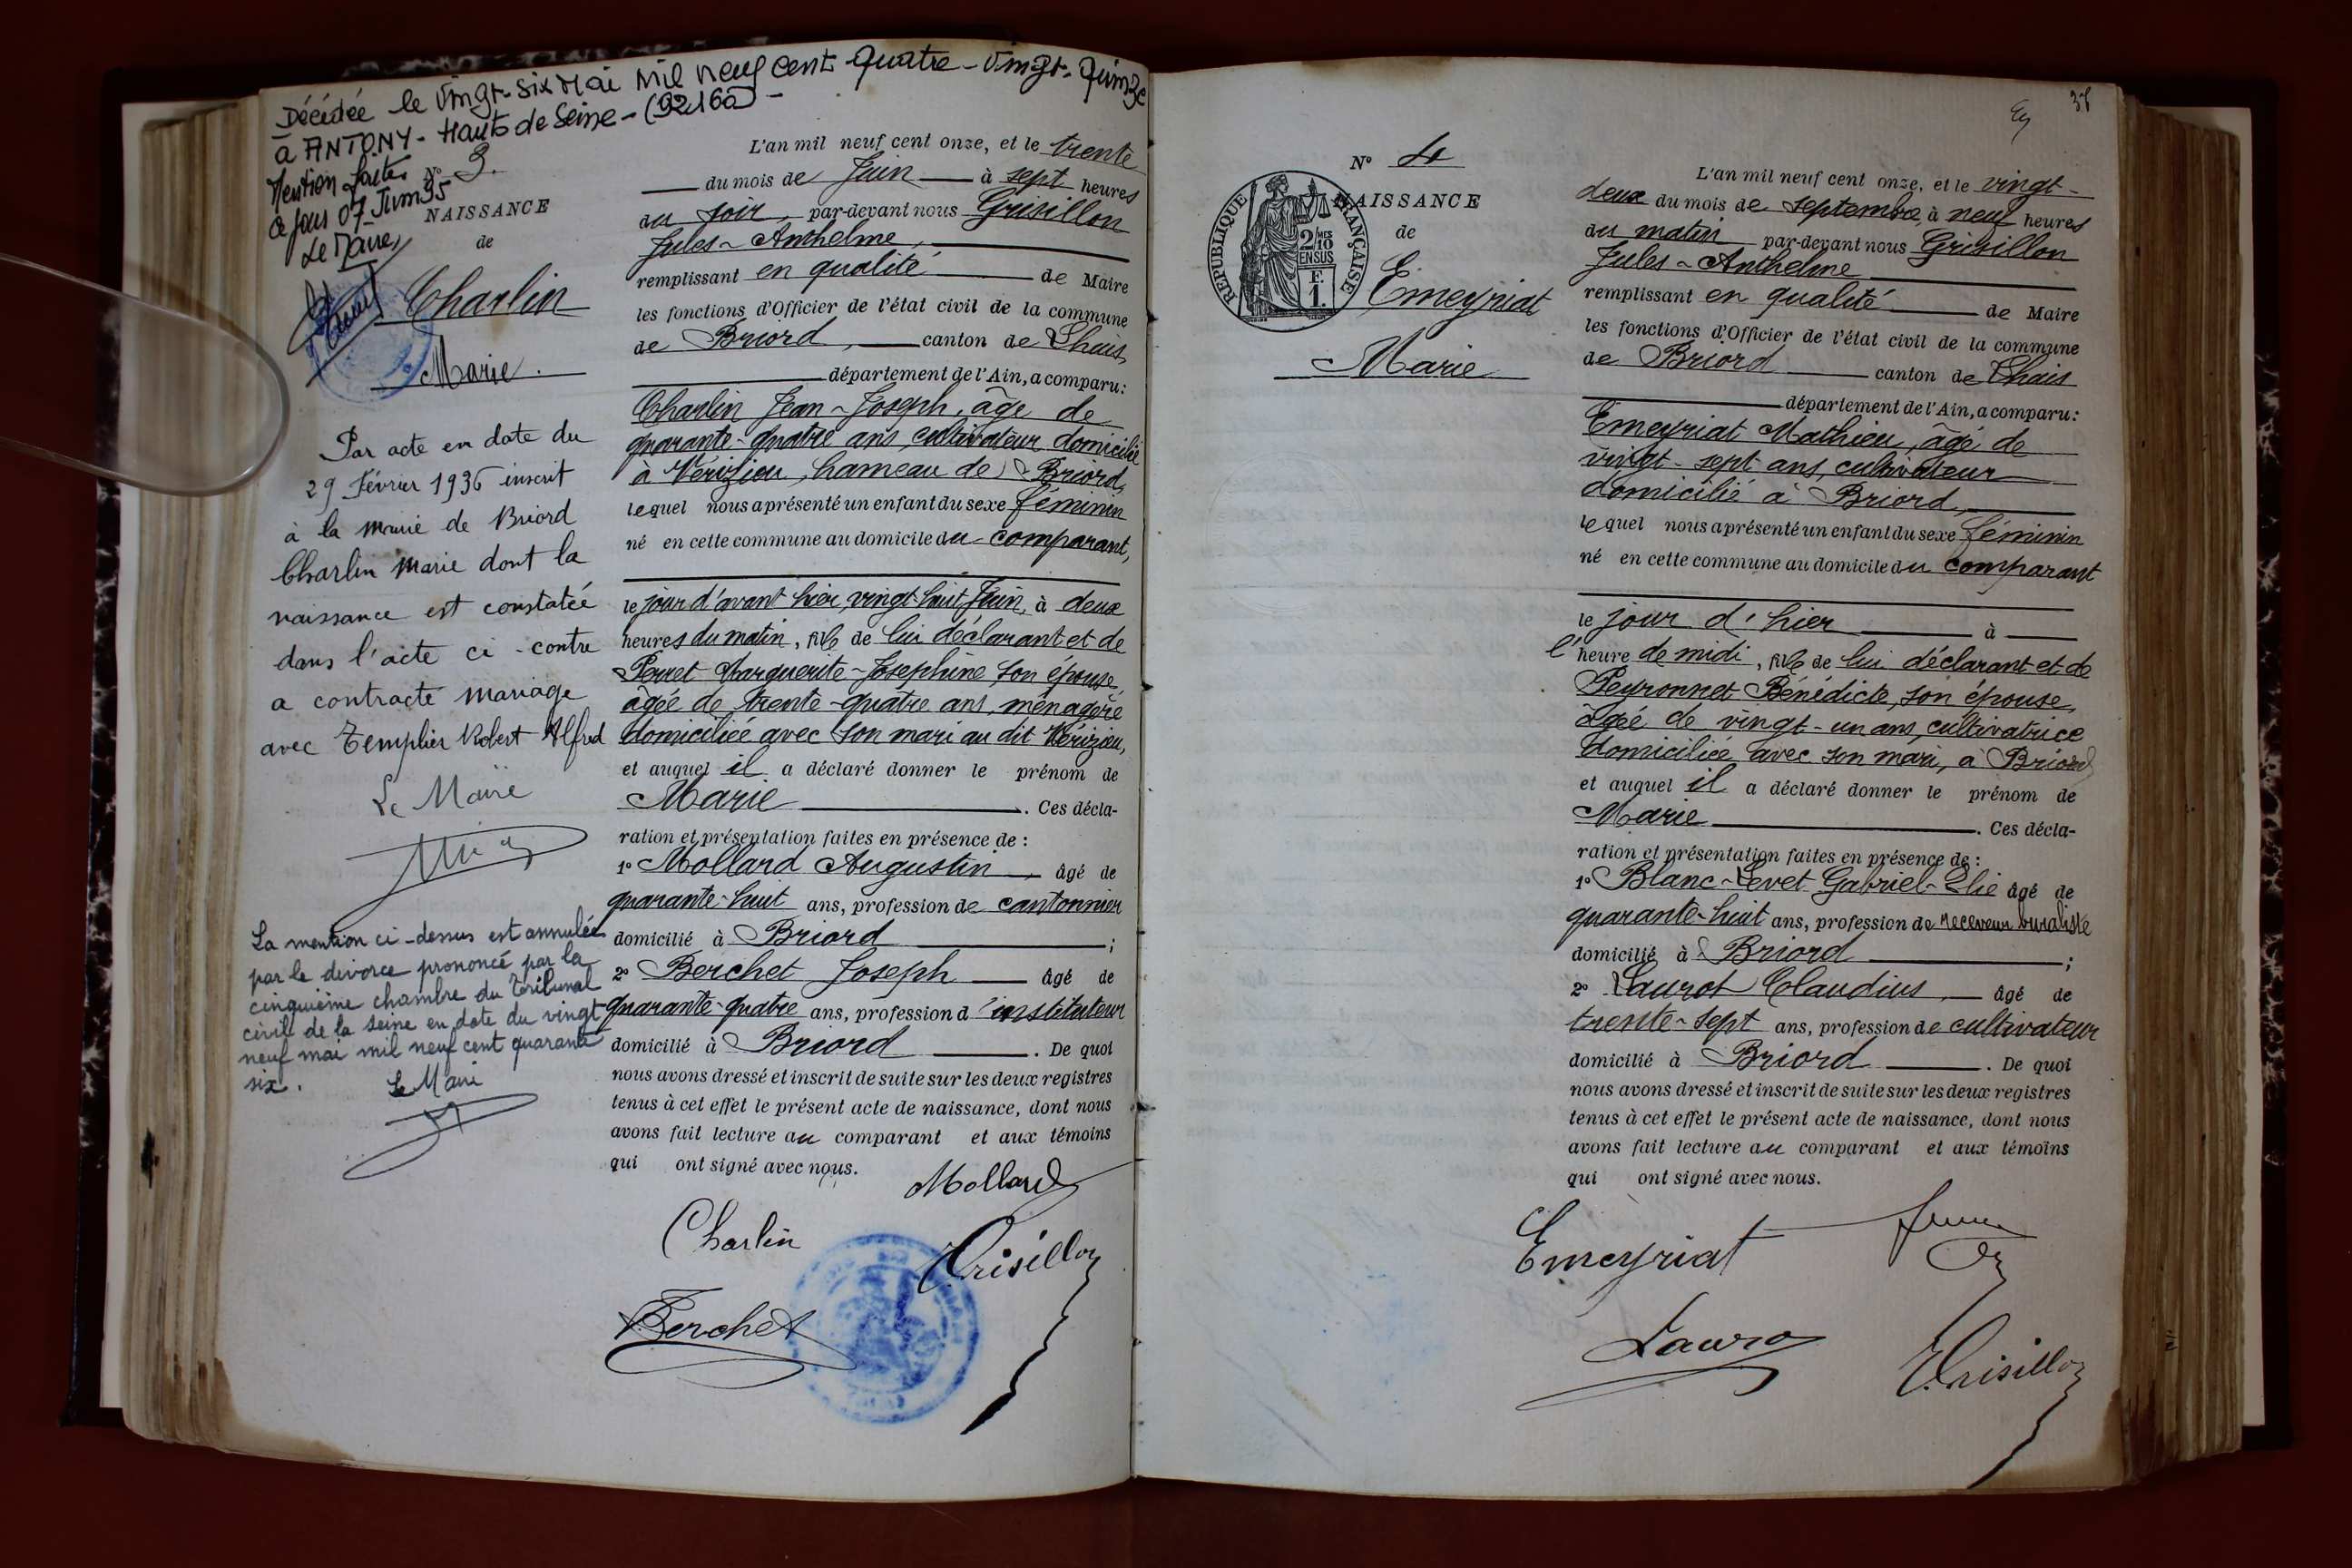 Décédée le Vingt-Six Mai Mil neuf cent quatre-Vingt-Quinze
à ANTONY - Hauts de Seine - (92160) -
Mention faite
ce jour 07 Juin 95
Le Maire,
N° 3.
NAISSANCE
de
Charlin
Marie.
Par acte en date du
29 Février 1936 inscrit
à la mairie de Briord
Charlin Marie dont la
naissance est constatée
dans l'acte ci-contre
a contracté mariage
avec Templier Robert Alfred
Le Maire
La mention ci-dessus est annulée
par le divorce prononcé par la
cinquième chambre du Tribunal
civil de la Seine en date du vingt
neuf mai mil neuf cent quarante
six.
Le Maire
L'an mil neuf cent onze, et le trente
du mois de Juin à sept heures
du soir, par-devant nous Grisillon
Jules-Anthelme,
remplissant en qualité de Maire
les fonctions d'Officier de l'état civil de la commune
de Briord, canton de Lhuis,
département de l'Ain, a comparu:
Charlin Jean-Joseph, âge de
quarante-quatre ans, cultivateur, domicilié
à Vérizieu, hameau de Briord,
lequel nous a présenté un enfant du sexe féminin
né en cette commune au domicile du comparant,
le jour d'avant hier, vingt-huit Juin, à deux
heures du matin, fille de lui déclarant et de
Perret Marguerite-Joséphine son épouse,
âgée de trente-quatre ans, ménagère
domiciliée avec son mari au dit Vérizieu,
et auquel il a déclaré donner le prénom de
Marie. Ces décla-
ration et présentation faites en présence de :
1° Mollard Augustin, âgé de
quarante-huit ans, profession de cantonnier
domicilié à Briord ;
2° Berchet Joseph âgé de
quarante-quatre ans, profession d'instituteur
domicilié à Briord. De quoi
nous avons dressé et inscrit de suite sur les deux registres
tenus à cet effet le présent acte de naissance, dont nous
avons fait lecture au comparant et aux témoins
qui ont signé avec nous.
Mollard
Charlin
Grisillon
Berchet
38
N° 4
REPUBLIQUE FRANÇAISE
2/10 MES
EN SUS
F.
1.
NAISSANCE
de
Emeyriat
Marie
L'an mil neuf cent onze, et le vingt-
deux du mois de septembre, à neuf heures
du matin par-devant nous Grisillon
Jules-Anthelme
remplissant en qualité de Maire
les fonctions d'Officier de l'état civil de la commune
de Briord canton de Lhuis
département de l'Ain, a comparu:
Emeyriat Mathieu, âgé de
vingt-sept ans, cultivateur
domicilié à Briord,
lequel nous a présenté un enfant du sexe féminin
né en cette commune au domicile du comparant
le jour d'hier à
l'heure de midi, fille de lui déclarant et de
Peyronnet Bénédicte, son épouse,
âgée de vingt-un ans, cultivatrice
domiciliée avec son mari, à Briord
et auquel il a déclaré donner le prénom de
Marie. Ces décla-
ration et présentation faites en présence de :
1° Blanc-Levet Gabriel-Elie âgé de
quarante-huit ans, profession de receveur buraliste
domicilié à Briord ;
2° Laurot Claudius, âgé de
trente-sept ans, profession de cultivateur
domicilié à Briord. De quoi
nous avons dressé et inscrit de suite sur les deux registres
tenus à cet effet le présent acte de naissance, dont nous
avons fait lecture au comparant et aux témoins
qui ont signé avec nous.
Emeyriat
Grisillon